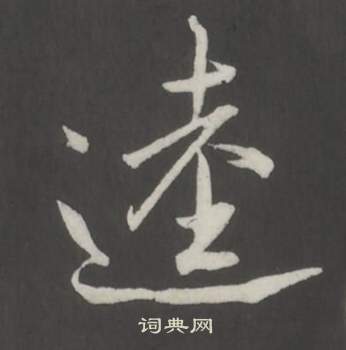 逵
词典网